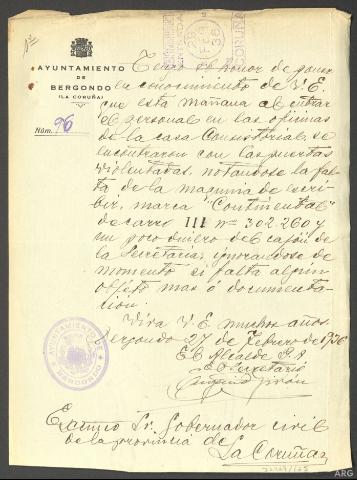 AYUNTAMIENTO
DE
BERGONDO
(LA CORUÑA)
Núm. 96
28 FEB 36
Tengo el honor de poner
en conocimiento de V. E.
que esta mañana al entrar
el personal en las oficinas
de la casa Consistorial, se
encontraron con las puertas
violentadas, notandose la fal-
ta de la maquina de escri-
bir, marca "Continental"
de carro III nº 302.260 y
un poco dinero del cajón de
la Secretaria, ignorandose de
momento si falta algún
objeto mas ó documenta-
ción.
Viva V. E. muchos años.
Bergondo 27 de Febrero de 1936
El Alcalde
El Secretario
AYUNTAMIENTO DE
BERGONDO
Excmo Sr. Gobernador civil
de la provincia de
La Coruña
ARG